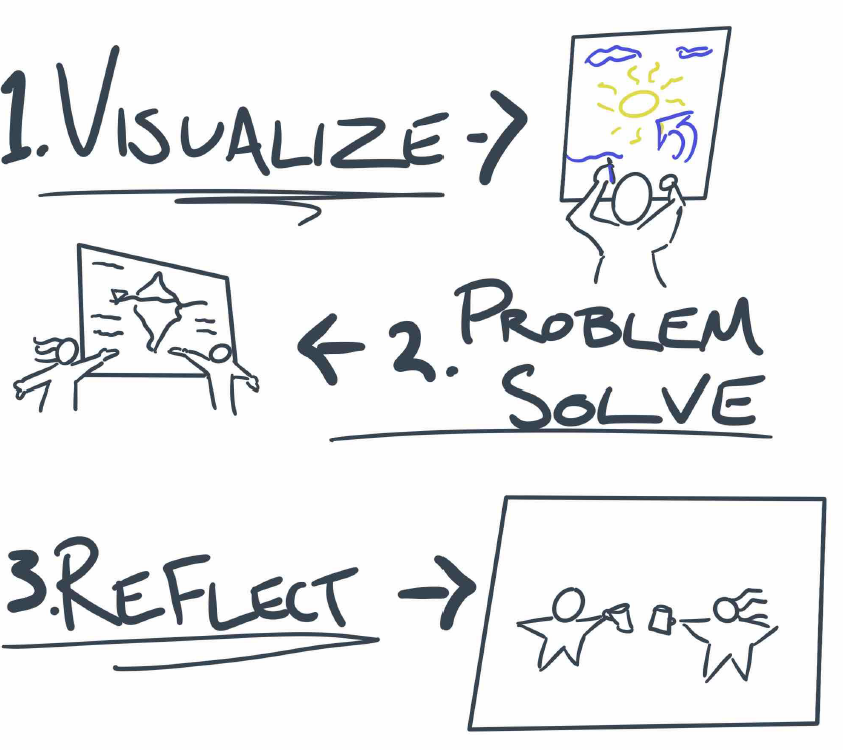 1. VISUALIZE
2. PROBLEM
SOLVE
3. REFLECT